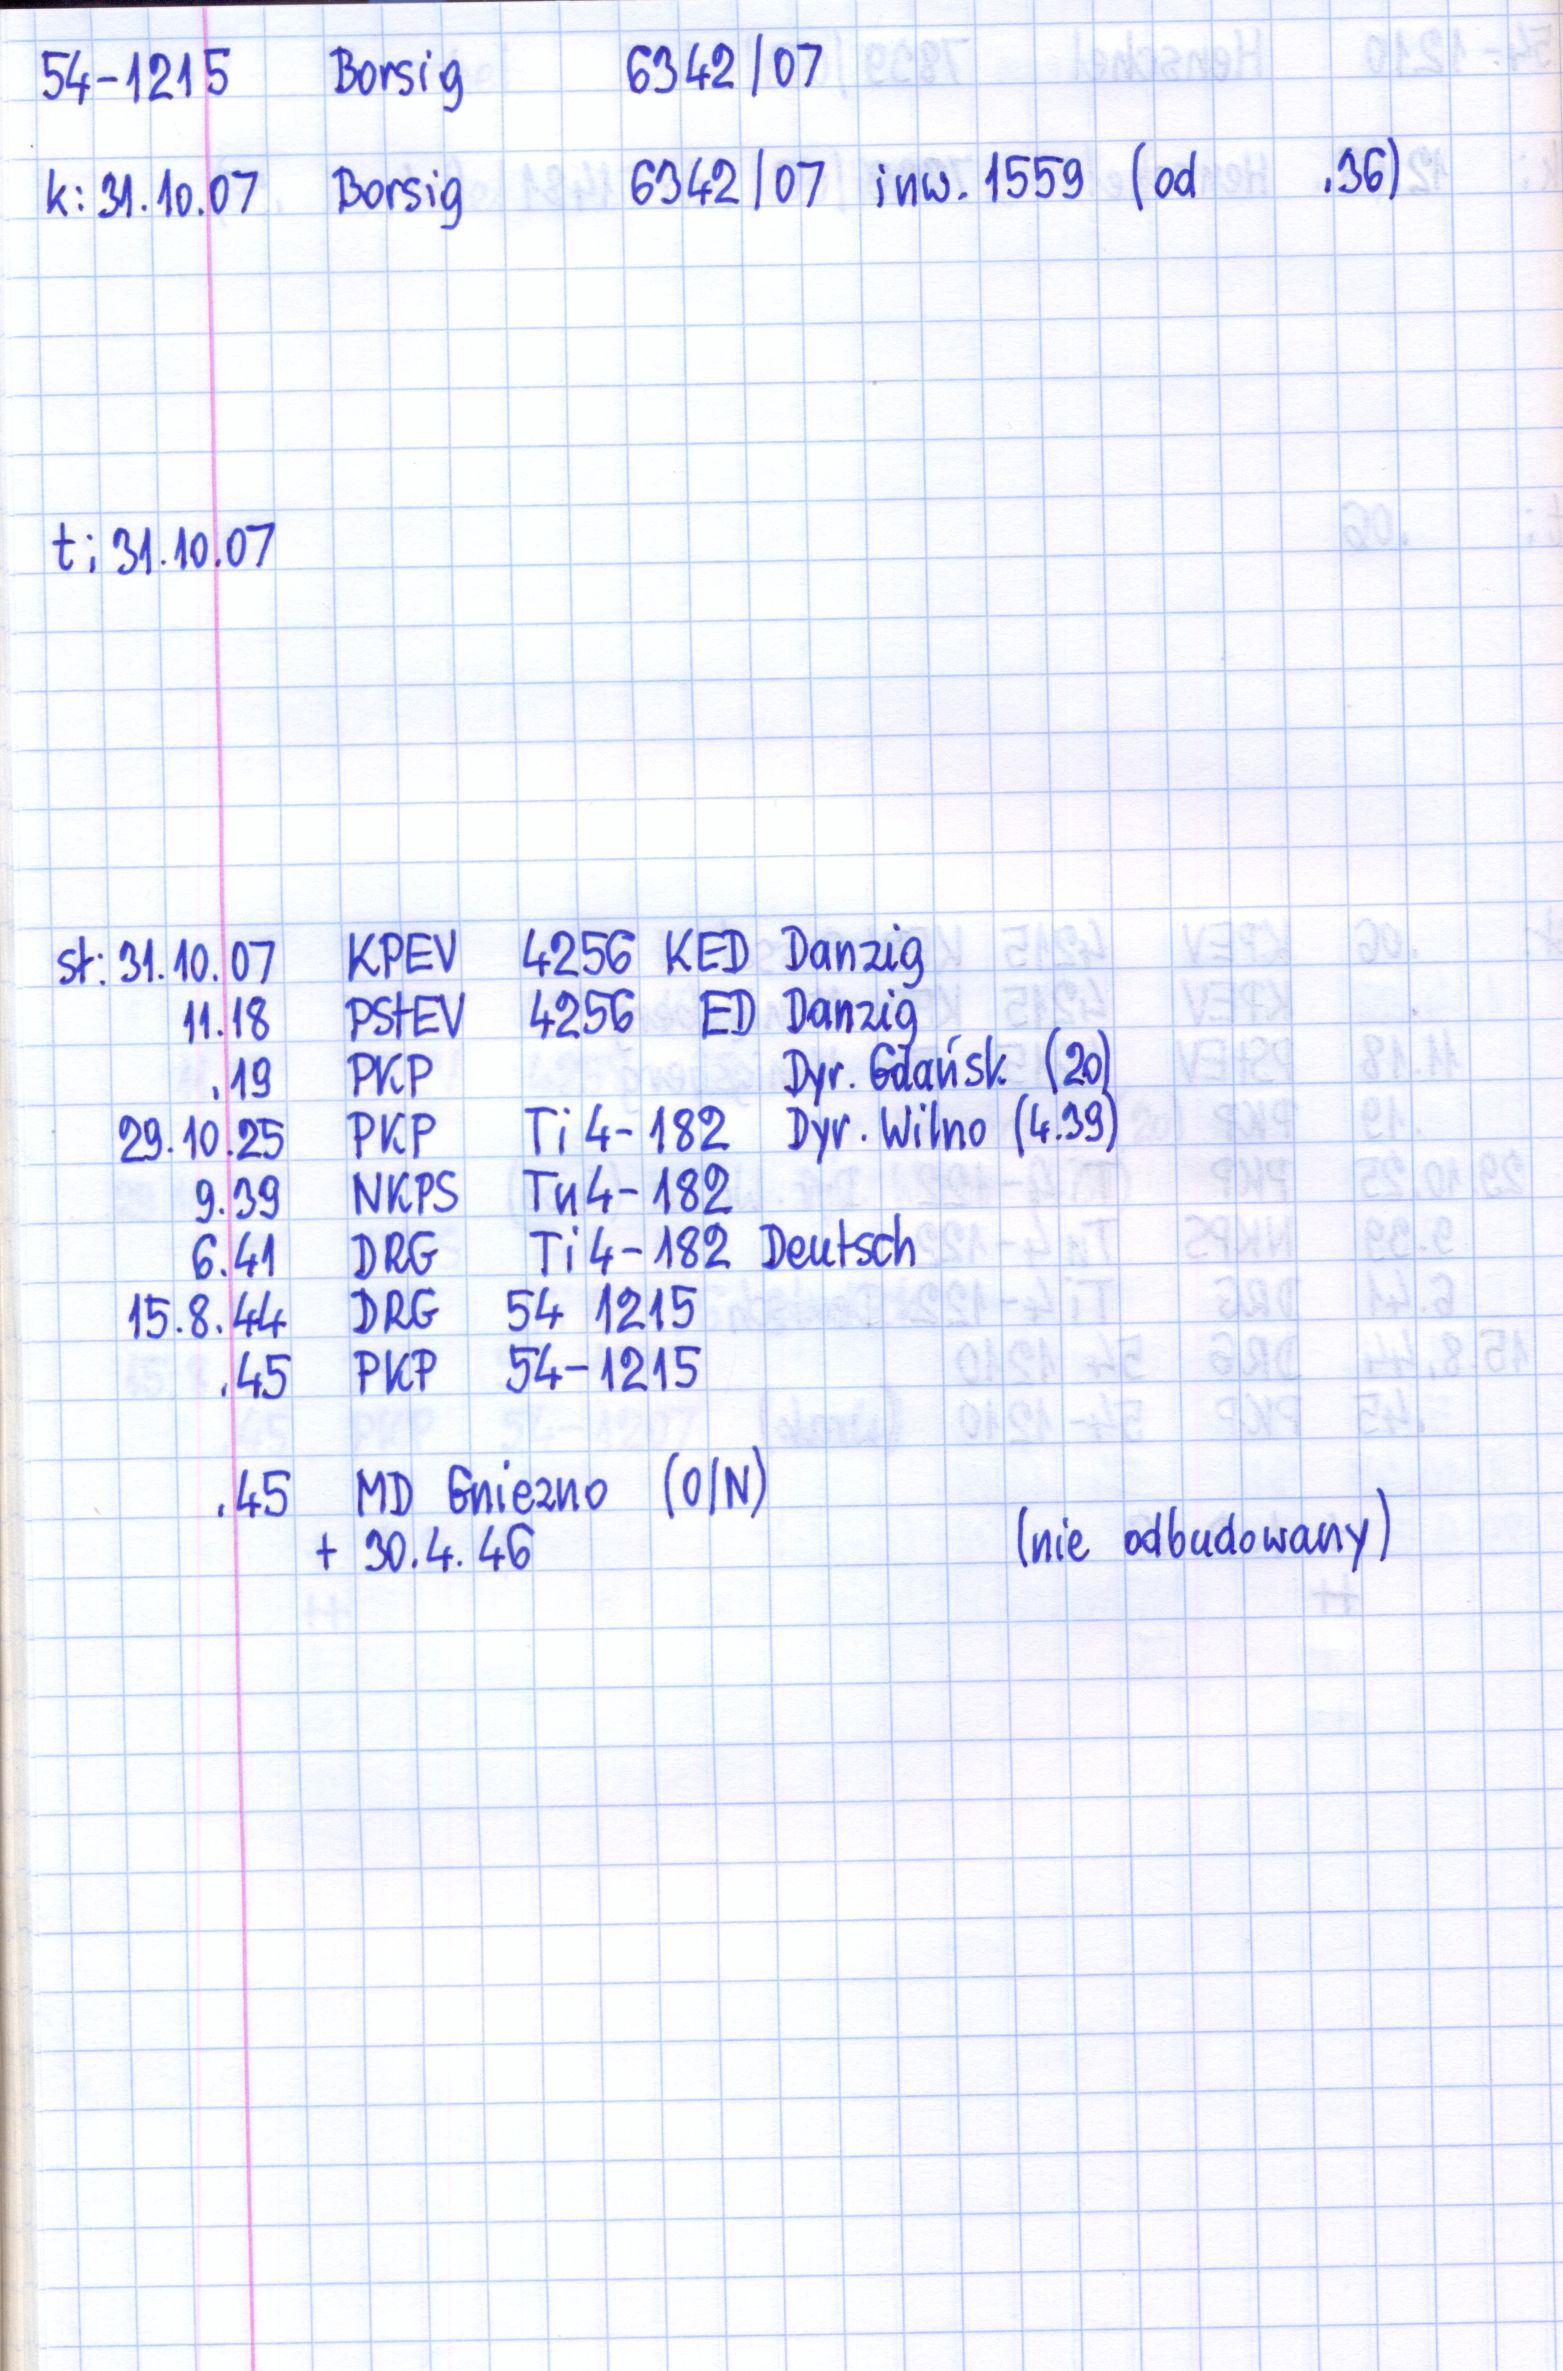 54-1215 Borsig 6342/07
k: 31.10.07 Borsig 6342/07 inw. 1559 (od .36)
t: 31.10.07
st: 31.10.07 KPEV 4256 KED Danzig
11.18 PStEV 4256 ED Danzig
.19 PKP Dyr. Gdańsk (20)
29.10.25 PKP Ti4-182 Dyr. Wilno (4.39)
9.39 NKPS Tu4-182
6.41 DRG Ti4-182 Deutsch
15.8.44 DRG 54 1215
.45 PKP 54-1215
.45 MD Gniezno (O/N)
+ 30.4.46 (nie odbudowany)